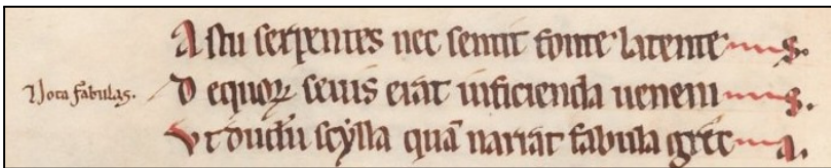 A stu serpentes nec sentit fonte latente s.
Nota fabulas. D equoꝝ seuis erat inficienda ueneni s.
V t dudū scylla quā narrat fabula grec a.